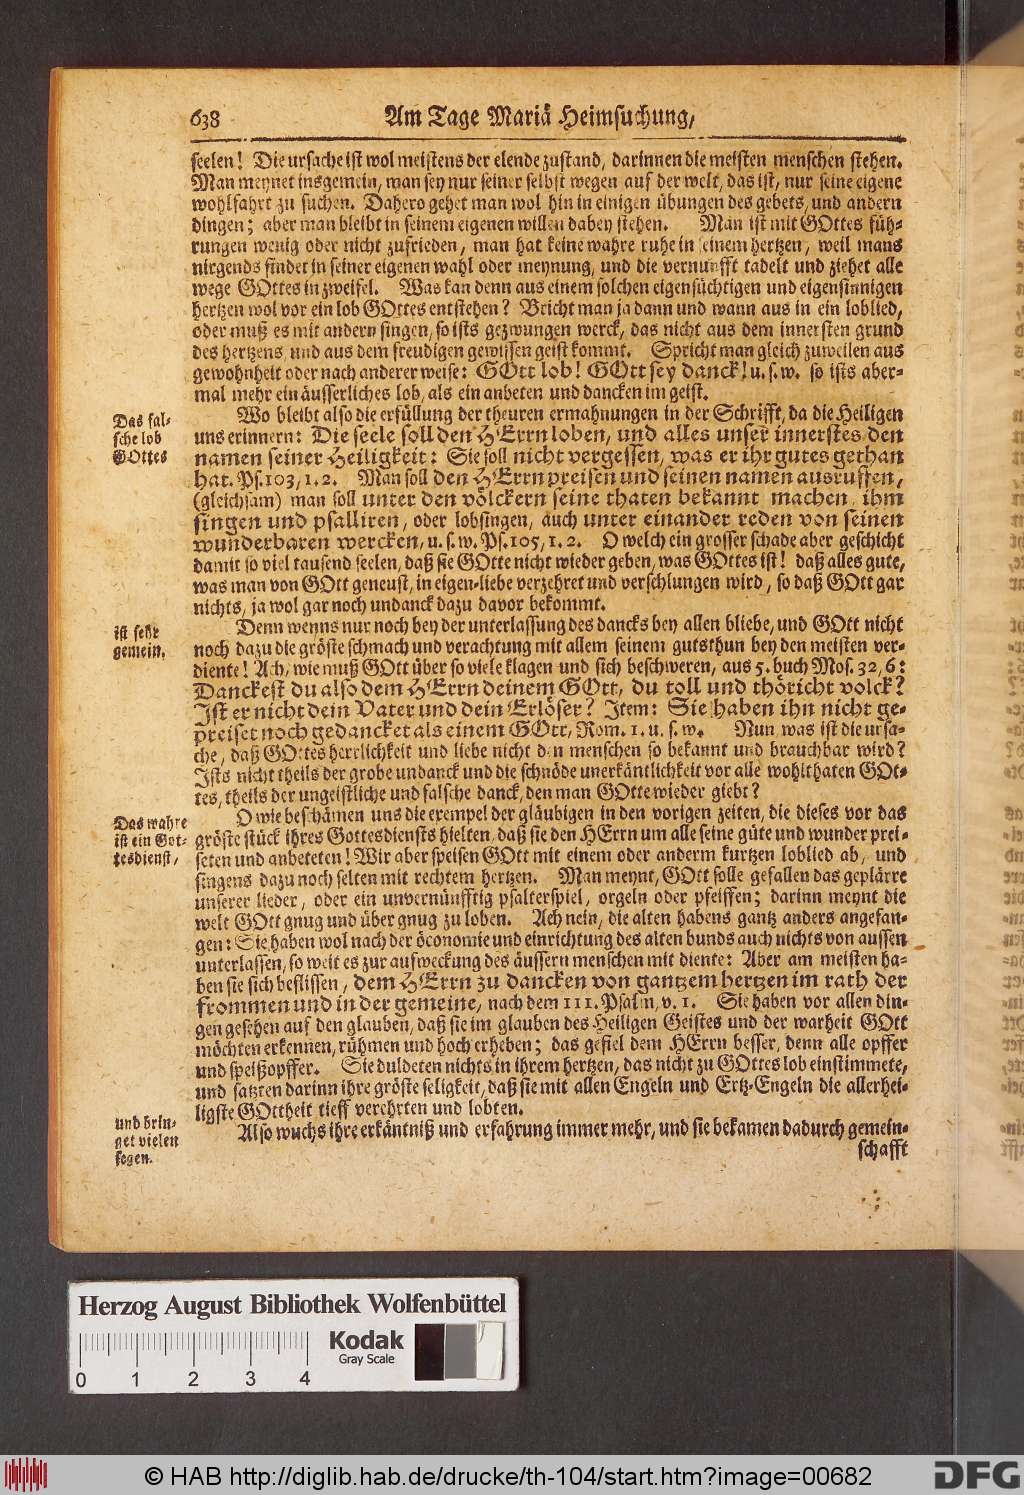 638 Am Tage Mariä Heimsuchung,
seelen! Die ursache ist wol meistens der elende zustand, darinnen die meisten menschen stehen.
Man meynet insgemein, man sey nur seiner selbst wegen auf der welt, das ist, nur seine eigene
wohlfahrt zu suchen. Dahero gehet man wol hin in einigen übungen des gebets, und andern
dingen; aber man bleibt in seinem eigenen willen dabey stehen. Man ist mit GOttes füh-
rungen wenig oder nicht zufrieden, man hat keine wahre ruhe in seinem hertzen, weil mans
nirgends findet in seiner eigenen wahl oder meynung, und die vernunfft tadelt und ziehet alle
wege GOttes in zweifel. Was kan denn aus einem solchen eigensüchtigen und eigensinnigen
hertzen wol vor ein lob GOttes entstehen? Bricht man ja dann und wann aus in ein loblied,
oder muß es mit andern singen, so ists gezwungen werck, das nicht aus dem innersten grund
des hertzens, und aus dem freudigen gewissen geist kommt. Spricht man gleich zuweilen aus
gewohnheit oder nach anderer weise: GOtt lob! GOtt sey danck! u. s. w. so ists aber-
mal mehr ein äusserliches lob, als ein anbeten und dancken im geist.
Das fal-
sche lob
GOttes
Wo bleibt also die erfüllung der theuren ermahnungen in der Schrifft, da die Heiligen
uns erinnern: Die seele soll den HErrn loben, und alles unser innerstes den
namen seiner Heiligkeit: Sie soll nicht vergessen, was er ihr gutes gethan
hat. Ps. 103, 1. 2. Man soll den HErrn preisen und seinen namen ausruffen,
(gleichsam) man soll unter den völckern seine thaten bekannt machen, ihm
singen und psalliren, oder lobsingen, auch unter einander reden von seinen
wunderbaren wercken, u. s. w. Ps. 105, 1. 2. O welch ein grosser schade aber geschicht
damit so viel tausend seelen, daß sie GOtte nicht wieder geben, was GOttes ist! daß alles gute,
was man von GOtt geneust, in eigen-liebe verzehret und verschlungen wird, so daß GOtt gar
nichts, ja wol gar noch undanck dazu davor bekommt.
ist sehr
gemein.
Denn wenns nur noch bey der unterlassung des dancks bey allen bliebe, und GOtt nicht
noch dazu die gröste schmach und verachtung mit allem seinem gutsthun bey den meisten ver-
diente! Ach, wie muß GOtt über so viele klagen und sich beschweren, aus 5. buch Mos. 32, 6:
Danckest du also dem HErrn deinem GOtt, du toll und thöricht volck?
Ist er nicht dein Vater und dein Erlöser? Item: Sie haben ihn nicht ge-
preiset noch gedancket als einem GOtt, Rom. 1. u. s. w. Nun was ist die ursa-
che, daß GOttes herrlichkeit und liebe nicht den menschen so bekannt und brauchbar wird?
Ists nicht theils der grobe undanck und die schnöde unerkäntlichkeit vor alle wohlthaten GOt-
tes, theils der ungeistliche und falsche danck, den man GOtte wieder giebt?
Das wahre
ist ein Got-
tesdienst,
O wie beschämen uns die exempel der gläubigen in den vorigen zeiten, die dieses vor das
gröste stück ihres Gottesdiensts hielten, daß sie den HErrn um alle seine güte und wunder prei-
seten und anbeteten! Wir aber speisen GOtt mit einem oder anderm kurtzen loblied ab, und
singens dazu noch selten mit rechtem hertzen. Man meynt, GOtt solle gefallen das geplärre
unserer lieder, oder ein unvernünfftig psalterspiel, orgeln oder pfeiffen; darinn meynt die
welt GOtt gnug und über gnug zu loben. Ach nein, die alten habens gantz anders angefan-
gen: Sie haben wol nach der öconomie und einrichtung des alten bunds auch nichts von aussen
unterlassen, so weit es zur aufweckung des äussern menschen mit diente: Aber am meisten ha-
ben sie sich beflissen, dem HErrn zu dancken von gantzem hertzen im rath der
frommen und in der gemeine, nach dem 111. Psalm, v. 1. Sie haben vor allen din-
gen gesehen auf den glauben, daß sie im glauben des Heiligen Geistes und der warheit GOtt
möchten erkennen, rühmen und hoch erheben; das gefiel dem HErrn besser, denn alle opffer
und speißopffer. Sie duldeten nichts in ihrem hertzen, das nicht zu GOttes lob einstimmete,
und satzten darinn ihre gröste seligkeit, daß sie mit allen Engeln und Ertz-Engeln die allerhei-
ligste GOttheit tieff verehrten und lobten.
und brin-
get vielen
segen.
Also wuchs ihre erkäntniß und erfahrung immer mehr, und sie bekamen dadurch gemein-
schafft
Herzog August Bibliothek Wolfenbüttel
Kodak
Gray Scale
0 1 2 3 4
© HAB http://diglib.hab.de/drucke/th-104/start.htm?image=00682
DFG